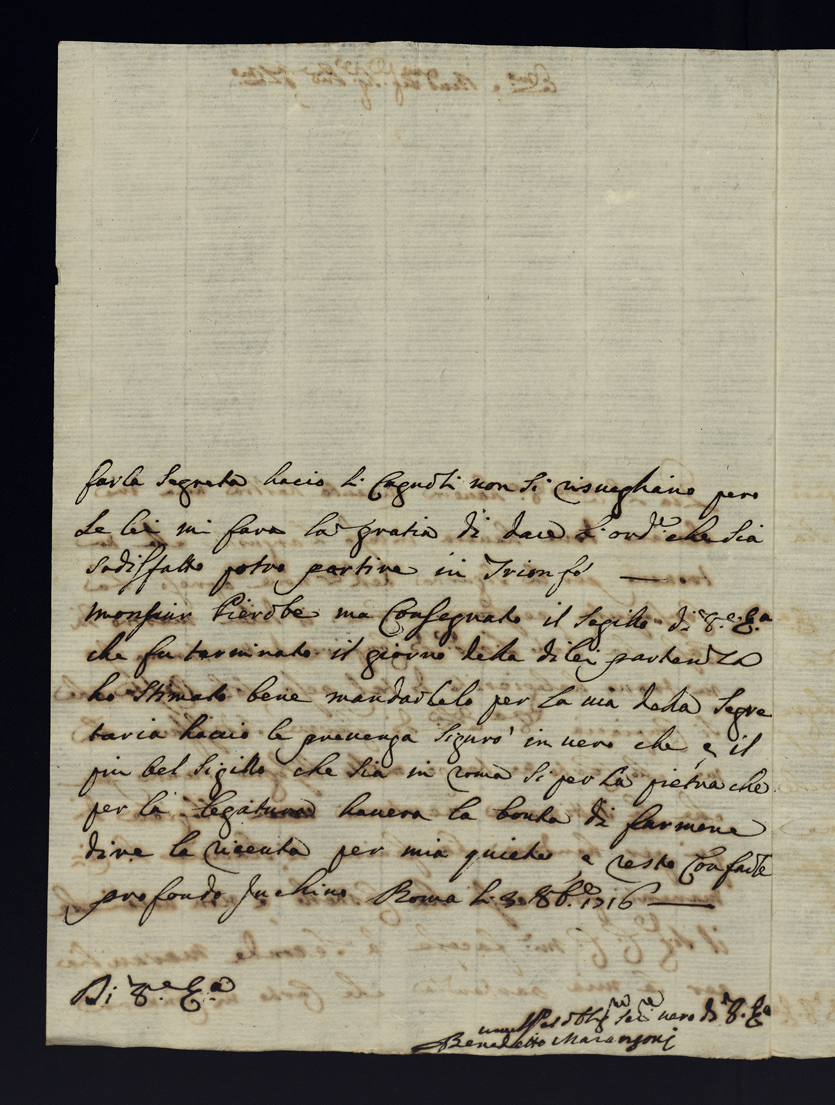 farla segreta hacio li Cagnoli non si risveghino pero
se lei mi fara la gratia di dare l'ord.e che sia
sodisfatto potro partire in Trionfo
monsiur Pierobe ma Consegnato il sigillo di V.e E.a
che fu terminato il giorno della di lei partenza
ho stimato bene mandarlelo per la via della segre
taria hacio le prevenga siguro in vero che è il
piu bel sigillo che sia in roma si per la pietra che
per la legatura havera la bonta di farmene
dire la riceuta per mia quiete e resto Con farle
profondo Inchino Roma li 3 8b.e 1716
Di V.e E.a
umiliss.o obblig.mo ser.e vero di V.e E.a
Benedetto Marangoni